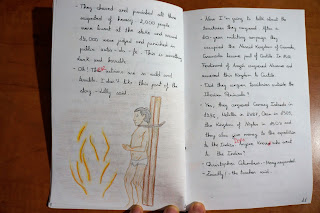 - They chased and punished all those
suspected of heresy. 2,000 people
were burnt at the stake and around
15,000 were judged and punished in
public autos-da-fe. This is something
dark and horrible.
- Oh! This actions are so cruel and
terrible. I don't like this part of the
story - Willy said.
- Now I'm going to talk about the
territories they conquered. After a
10-year military campaign they
occupied the Nasrid Kingdom of Granada.
Granada became part of Castile. In 1512
Ferdinand of Aragón conquered Navarre and
annexed this Kingdom to Castile.
- Did they conquer territories outside the
Iberian Peninsula?
- Yes, they conquered Canary Islands in
1496, Melilla in 1497, Oran in 1509,
the Kingdom of Naples in 1503 and
they also give money to the expedition
to the Indies. Do you know who went
to the Indies?
- Christopher Columbus - Harry responded.
- Exactly! - the teacher said.